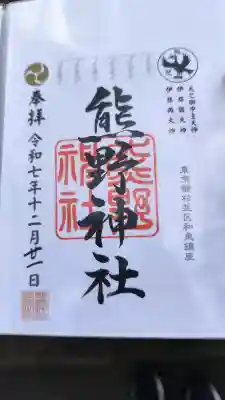 天之御中主大神
伊邪諾大神
伊邪冉大神
東京都杉並区和泉鎮座
熊野神社
熊野
神社
奉拝
令和七年十二月廿一日